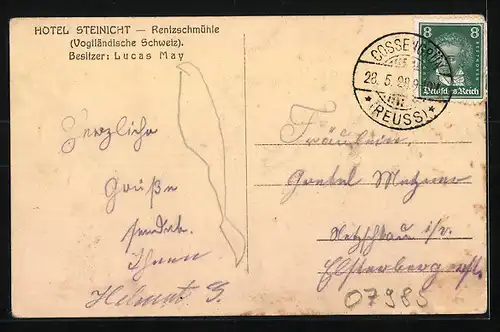 HOTEL STEINICHT — Rentzschmühle
(Vogtländische Schweiz).
Besitzer: Lucas May
GOSSENGRÜN
28. 5. 28
*(REUSS)*
8 8
Deutsches Reich
Herzliche
Grüße
sendet
Ihnen
Helmut G.
Fräulein
Gretel Metzner
Netzschkau i/V.
Elsterberger
07985